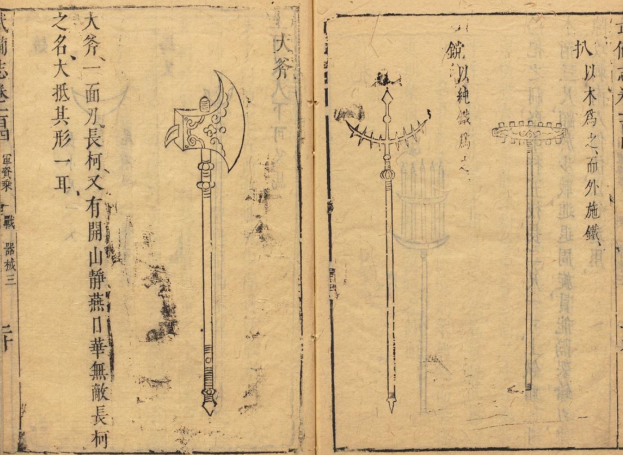 扒以木爲之、而外施鐵、
鎲以純鐵爲
大斧
大斧、一面刃長柯、又有開山靜燕日華無敵長柯
之名、大抵其形一耳、
武備志卷一百四 軍資乘 戰 器械三 二十